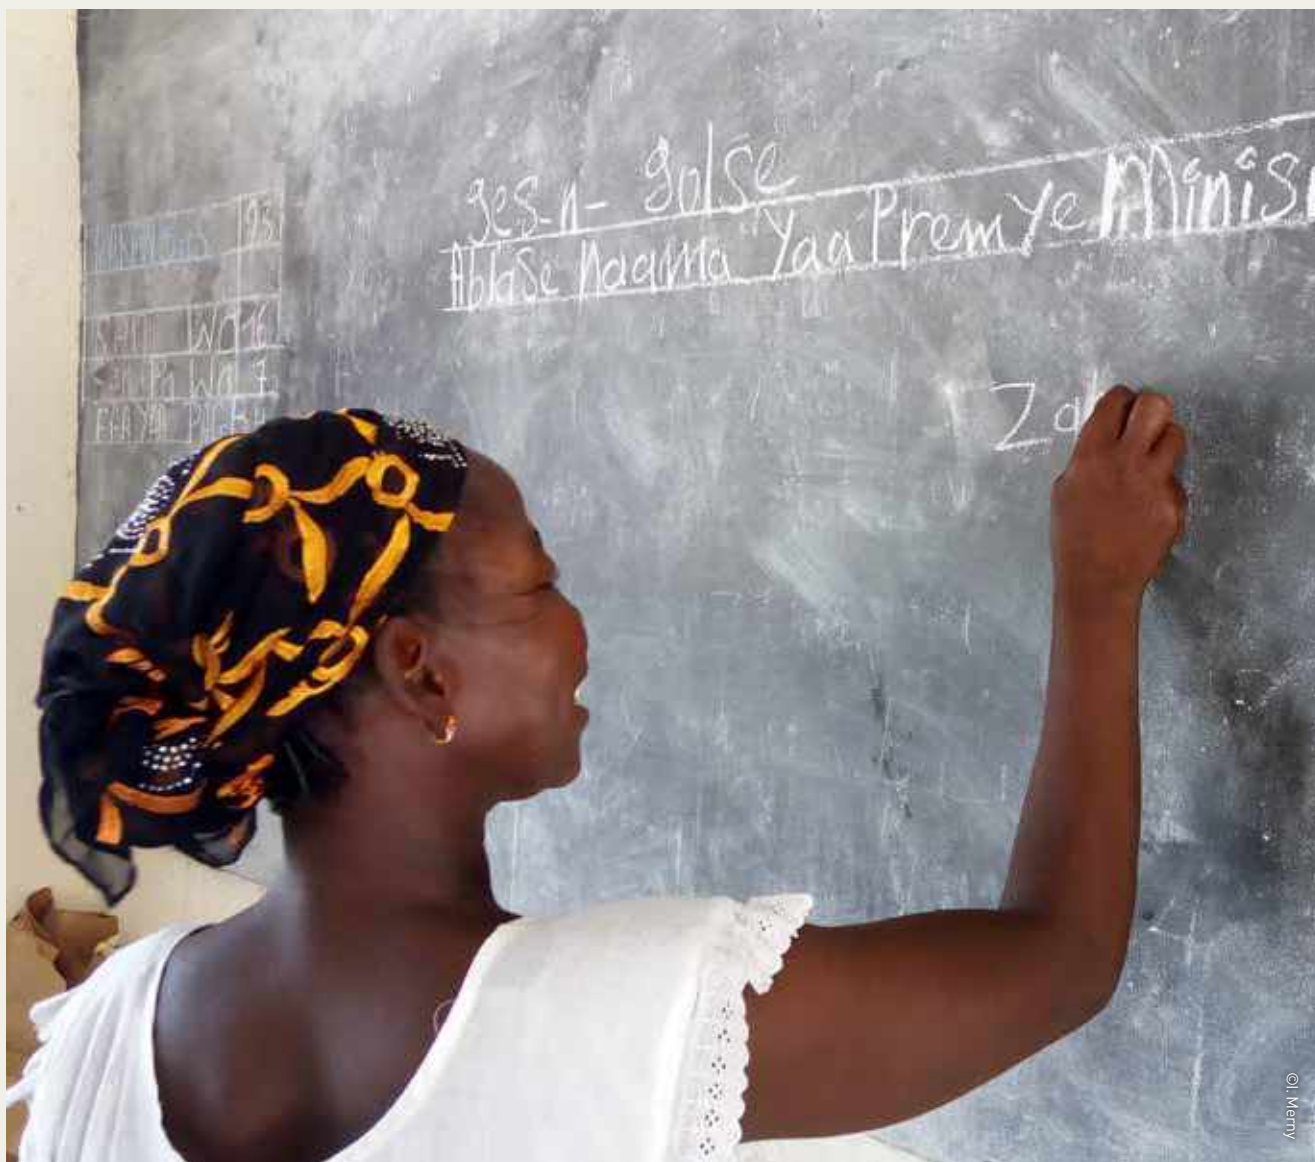 ges-n- golse
Ablase naama Yaa Premye Minis
Za
Wa 16
Pa Wa 7
©I. Memy